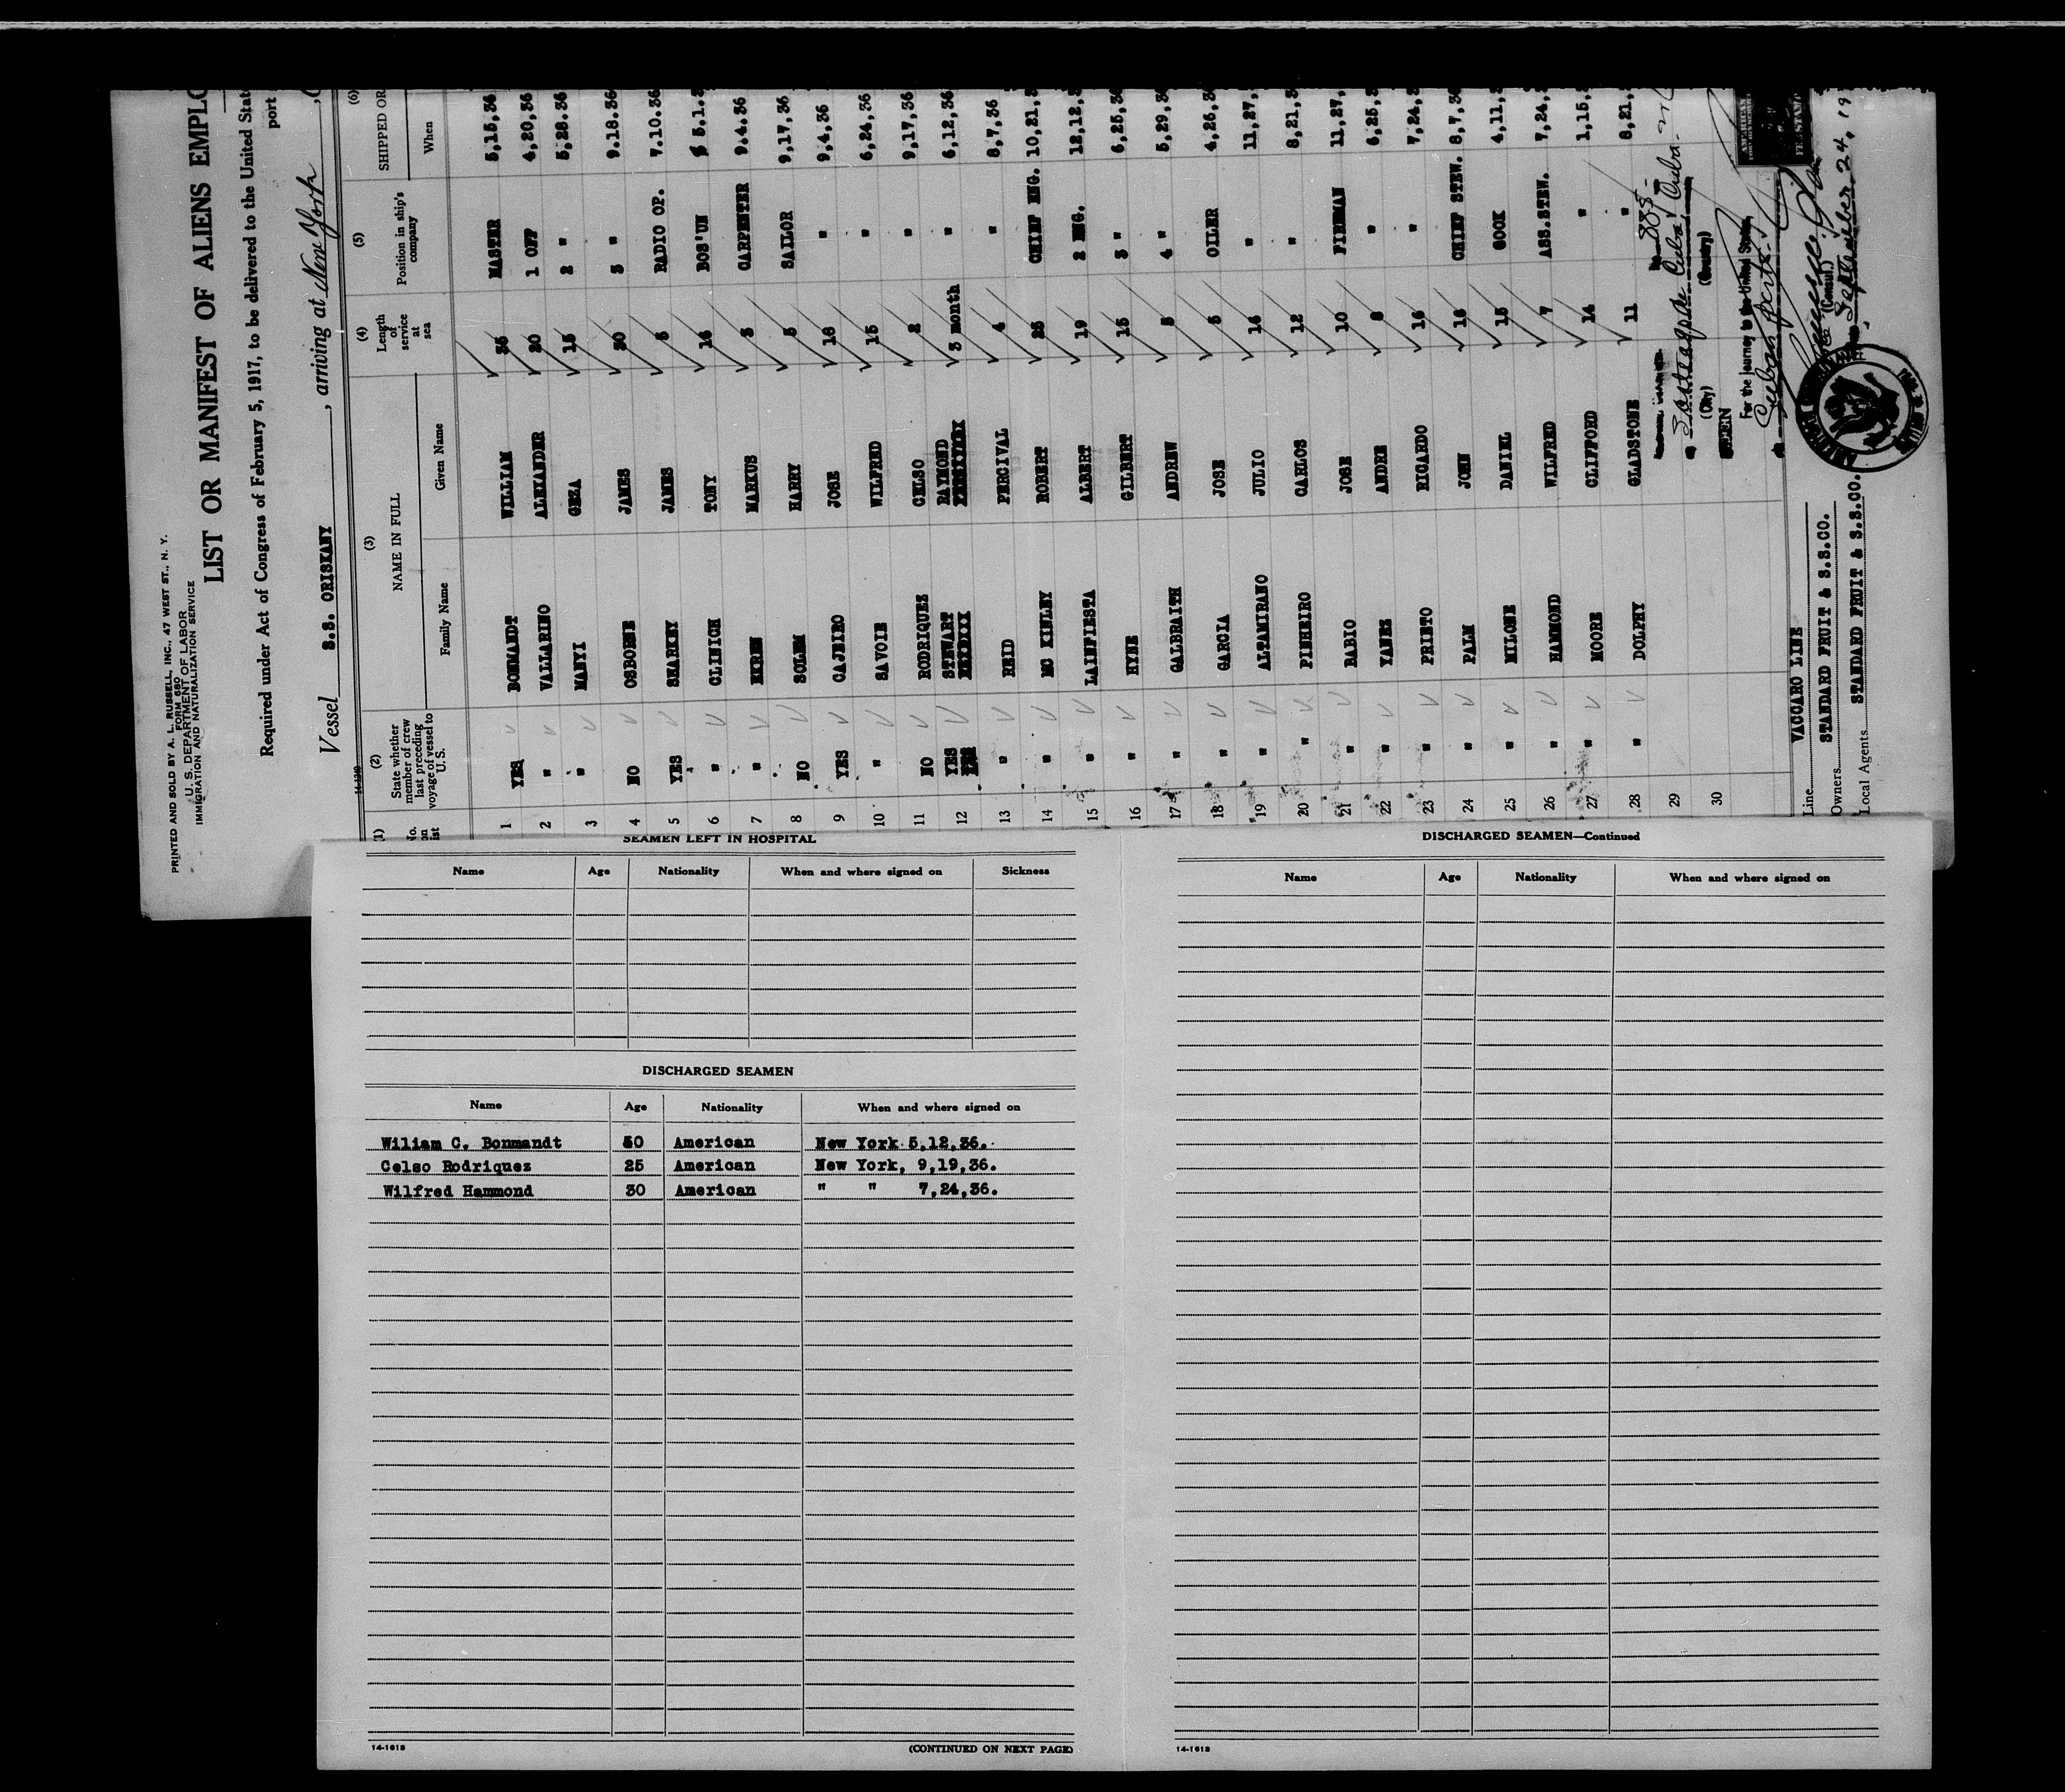 PRINTED AND SOLD BY A. L. RUSSELL, INC., 47 WEST ST., N. Y.
FORM 680
U. S. DEPARTMENT OF LABOR
IMMIGRATION AND NATURALIZATION SERVICE
LIST OR MANIFEST OF ALIENS EMPLO
Required under Act of Congress of February 5, 1917, to be delivered to the United State
port
Vessel S.S. ORISKANY, arriving at New York
(1) (2) (3) (4) (5) (6)
No. on list State whether member of crew last preceding voyage of vessel to U.S. NAME IN FULL Length of service at sea Position in ship's company SHIPPED OR
Family Name Given Name When
1 YES BONMANDT WILLIAM 35 MASTER 5,15,36
2 " VALLARINO ALEXANDER 20 1 OFF 4,20,36
3 " MANYI GEZA 15 2 " 5,28.36
4 NO OSBORNE JAMES 30 3 " 9.18.36
5 YES SHARKEY JAMES 5 RADIO OP. 7.10.36
6 " CLINICH TONY 16 BOS'UN 5.1.3
7 " MARKUS 3 CARPENTER 9.4.36
8 NO SOLEM HARRY 5 SAILOR 9,17,36
9 YES CAJEIRO JOSE 18 " 9,4,36
10 " SAVOIE WILFRED 15 " 6,24,36
11 NO RODRIQUEZ CELSO 2 " 9,17,36
12 YES STEWART RAYMOND 3 month " 6,12,36
13 " REID PERCIVAL 4 " 8,7,36
14 " MC KINLEY ROBERT 25 CHIEF ENG. 10,21,3
15 " LAINFIESTA ALBERT 19 2 ENG. 12,12,3
16 " HYNE GILBERT 15 3 " 6,25,36
17 " GALBRAITH ANDREW 5 4 " 5,29,36
18 " GARCIA JOSE 5 OILER 4,26,36
19 " ALTAMIRANO JULIO 16 " 11,27,
20 " PINHEIRO CARLOS 12 " 8,21,3
21 " BABIO JOSE 10 FIREMAN 11,27,
22 " YANEZ ANDRE 8 " 6,25,3
23 " PRIETO RICARDO 16 " 7,24,3
24 " PALM JOHN 16 CHIEF STEW. 8,7,36
25 " MILONE DANIEL 15 COOK 4,11,3
26 " HAMMOND WILFRED 7 ASS.STEW. 7,24,3
27 " MOORE CLIFFORD 14 " 1,15,3
28 " DOLPHY GLADSTONE 11 " 8,21,
29
30
(City) (Country)
SEEN
For the journey to the United States
(Consul)
September 24, 19
Line VACCARO LINE
Owners STANDARD FRUIT & S.S.CO.
Local Agents STANDARD FRUIT & S.S.CO.
SEAMEN LEFT IN HOSPITAL
Name Age Nationality When and where signed on Sickness
DISCHARGED SEAMEN
Name Age Nationality When and where signed on
Wiliam C. Bonmandt 50 American New York 5,12,36.
Celso Rodriquez 25 American New York, 9,19,36.
Wilfred Hammond 30 American " " 7,24,36.
14-1613 (CONTINUED ON NEXT PAGE)
DISCHARGED SEAMEN—Continued
Name Age Nationality When and where signed on
14-1613